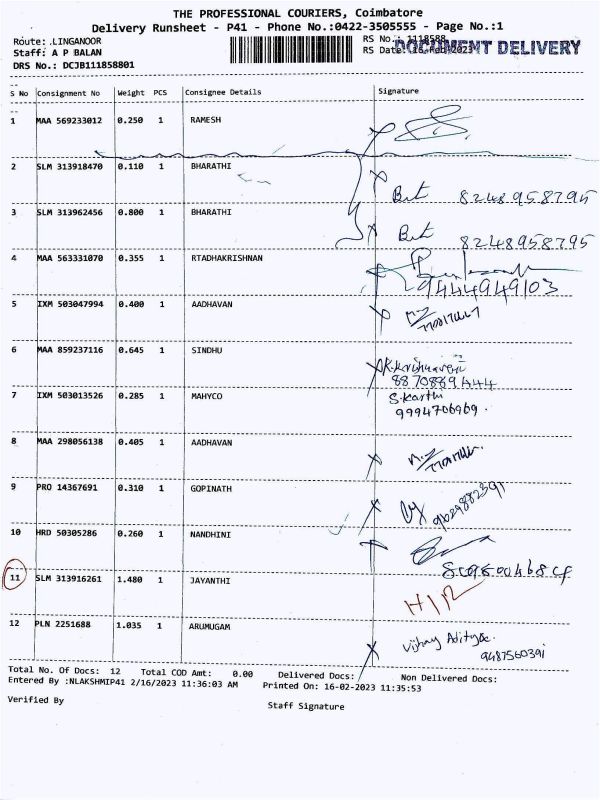 THE PROFESSIONAL COURIERS, Coimbatore
Delivery Runsheet - P41 - Phone No.:0422-3505555 - Page No.:1
Route: .LINGANOOR
RS No.: 1118588
Staff: A P BALAN
RS Date: 16-Feb-2023
DOCUMENT DELIVERY
DRS No.: DCJB111858801
S No Consignment No Weight PCS Consignee Details Signature
1 MAA 569233012 0.250 1 RAMESH
2 SLM 313918470 0.110 1 BHARATHI
8248958795
3 SLM 313962456 0.800 1 BHARATHI
8248958795
4 MAA 563331070 0.355 1 RTADHAKRISHNAN
9444949103
5 IXM 503047994 0.400 1 AADHAVAN
6 MAA 859237116 0.645 1 SINDHU
7 IXM 503013526 0.285 1 MAHYCO
S.Karthi
9994706969.
8 MAA 298056138 0.405 1 AADHAVAN
9 PRO 14367691 0.310 1 GOPINATH
10 HRD 50305286 0.260 1 NANDHINI
11 SLM 313916261 1.480 1 JAYANTHI
12 PLN 2251688 1.035 1 ARUMUGAM
Vijay Aditya
9487560391
Total No. Of Docs: 12 Total COD Amt: 0.00 Delivered Docs: Non Delivered Docs:
Entered By :NLAKSHMIP41 2/16/2023 11:36:03 AM Printed On: 16-02-2023 11:35:53
Verified By
Staff Signature